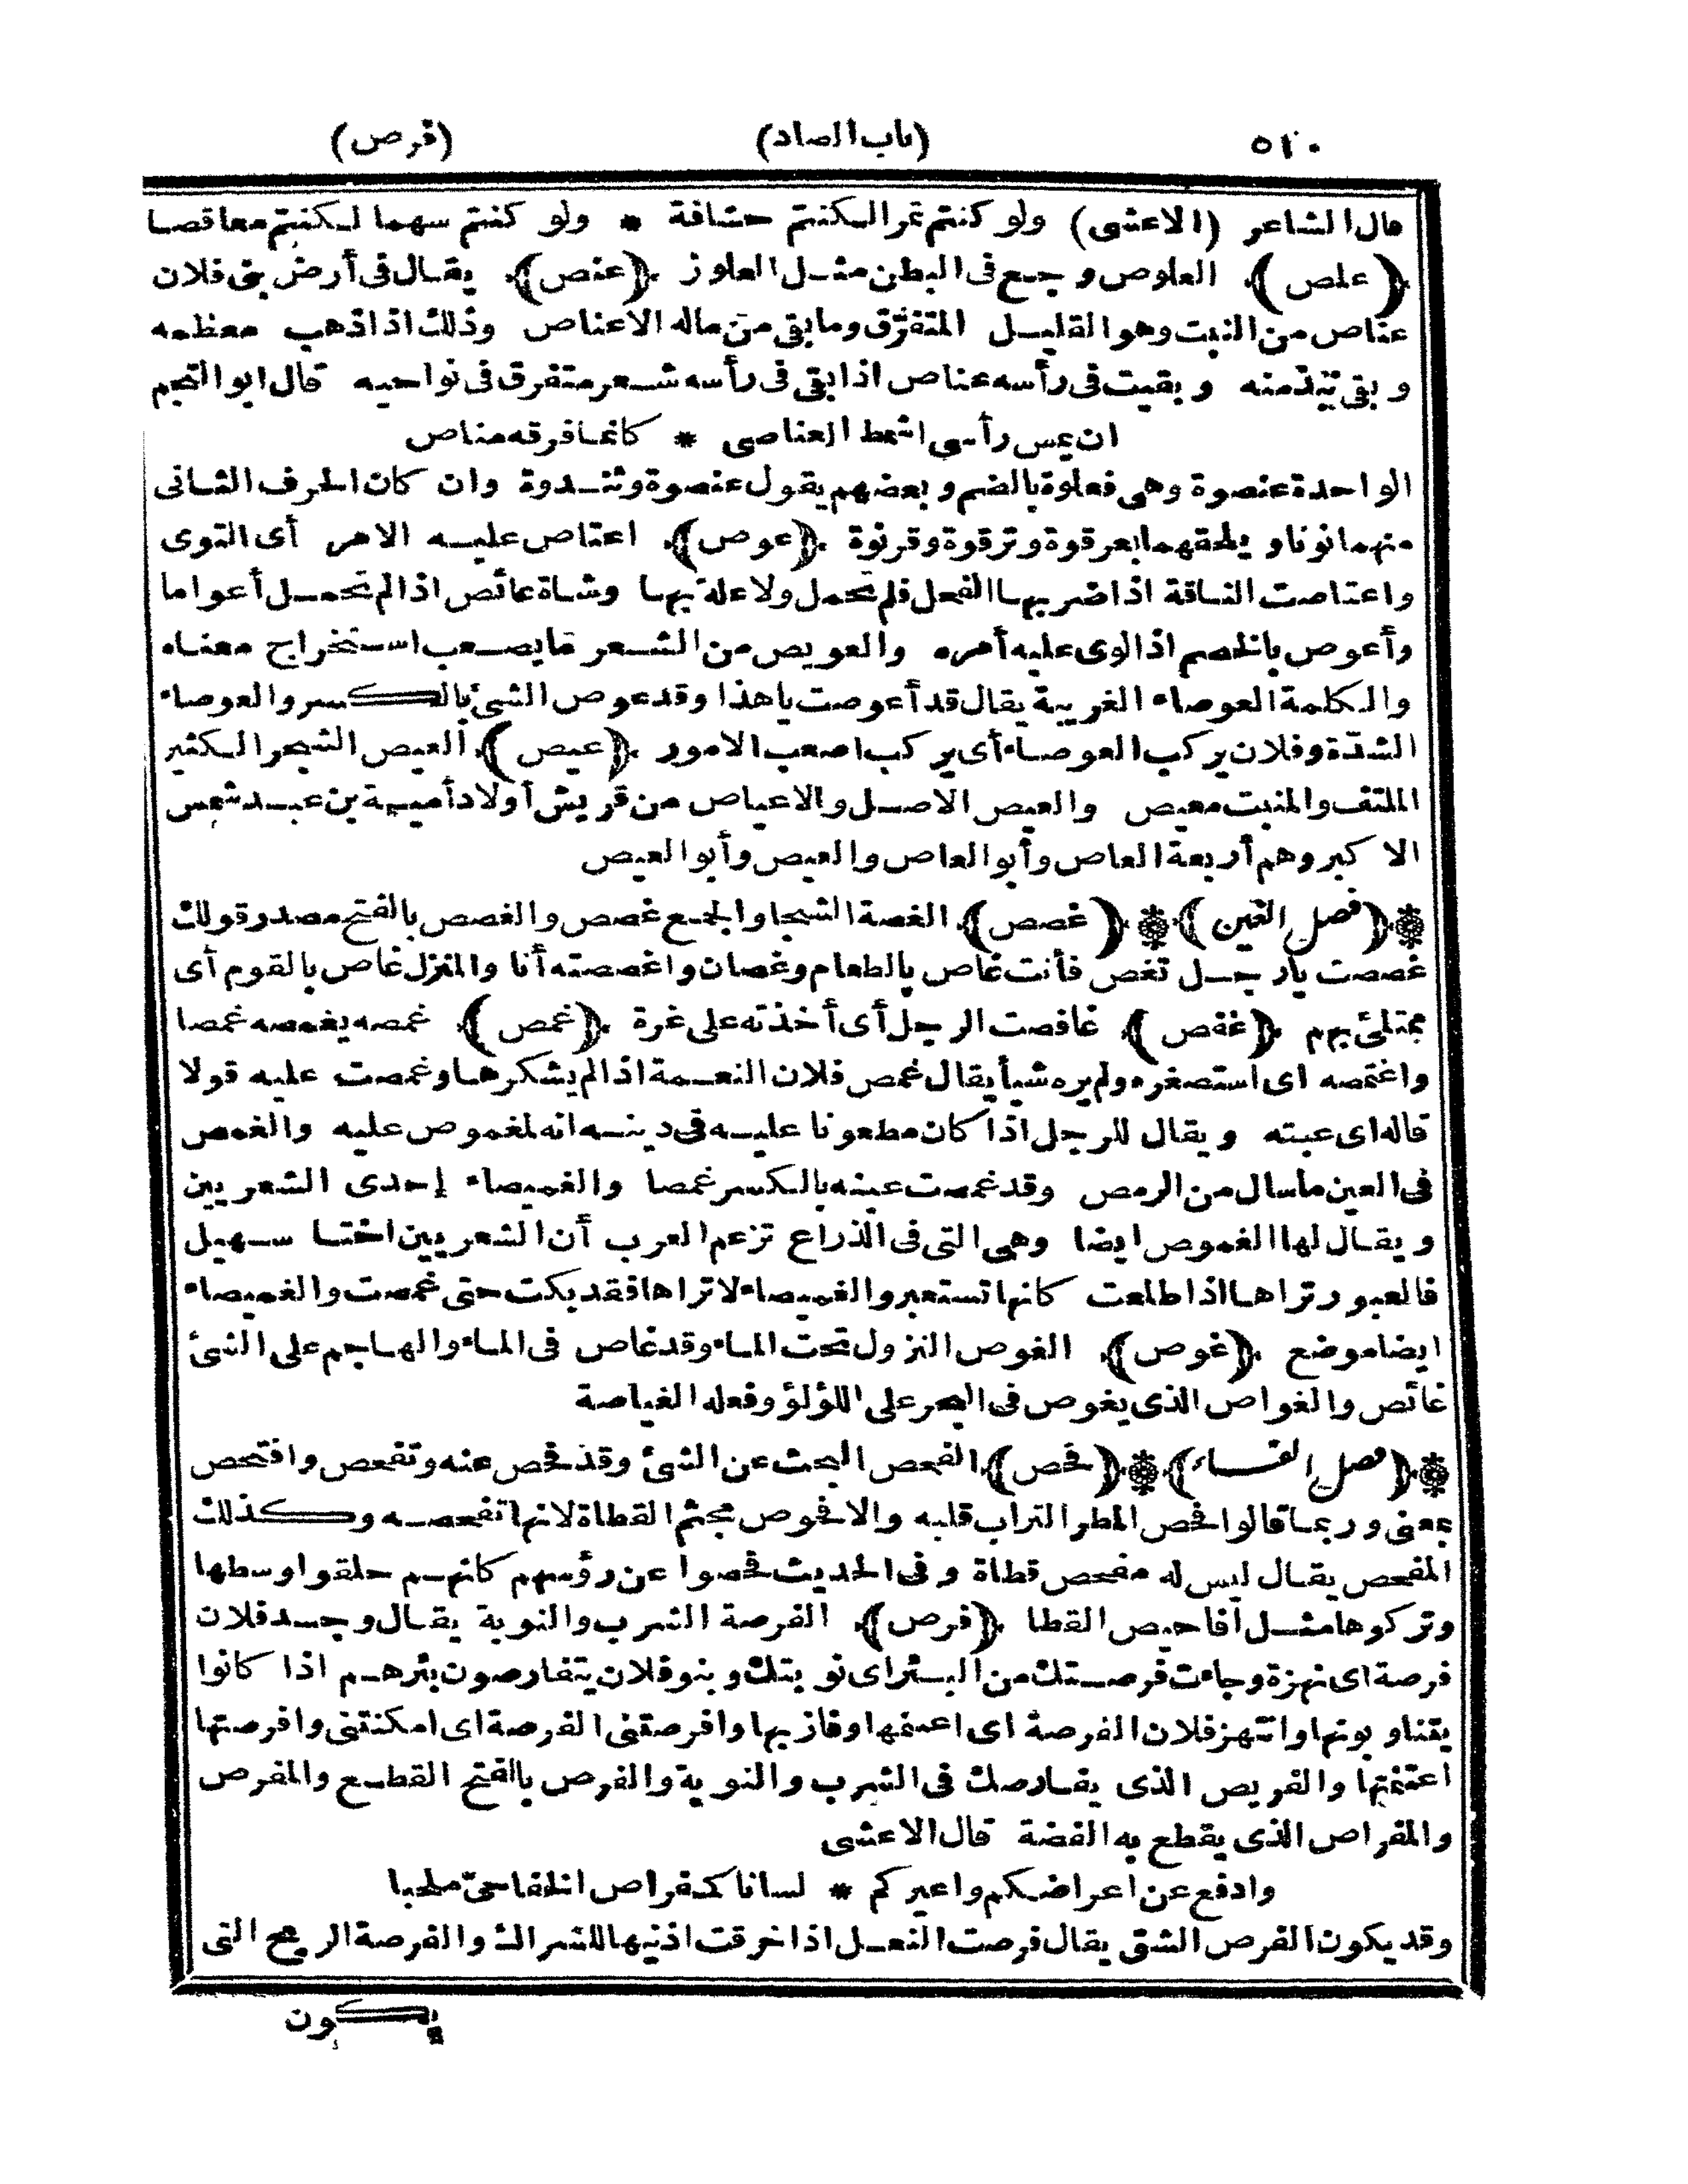 ٥١٠ (باب الصاد) (فرص)
قال الشاعر (الاعشى) ولو كنتم تمرا لكنتم حشافة * ولو كنتم سهما لكنتم معاقصا
(علص) العلوص وجع فى البطن مثل العلوز (عنص) يقال فى أرض بنى فلان
عناص من النبت وهو القليل المتفرّق وما بقى من ماله الا عناص وذلك اذا ذهب معظمه
وبقى نبذ منه وبقيت فى رأسه عناص اذا بقى فى رأسه شعر متفرق فى نواحيه قال ابو النجم
ان يمس رأسى اشمط العناصى * كانما فرقه مناص
الواحدة عنصوة وهى فعلوة بالضم وبعضهم يقول عنصوة وثندوة وان كان الحرف الثانى
منهما نونا ويلحقهما بعرقوة وترقوة وقرنوة (عوص) اعتاص عليه الامر أى التوى
واعتاصت الناقة اذا ضربها الفحل فلم تحمل ولا علة بها وشاة عائص اذا لم تحمل أعواما
وأعوص بالخصم اذا لوى عليه أمره والعويص من الشعر ما يصعب استخراج معناه
والكلمة العوصاء الغريبة يقال قد أعوصت يا هذا وقد عوص الشئ بالكسر والعوصاء
الشدّة وفلان يركب العوصاء أى يركب اصعب الامور (عيص) العيص الشجر الكثير
الملتف والمنبت معيص والعيص الاصل والاعياص من قريش أولاد أمية بن عبد شمس
الاكبر وهم أربعة العاص وأبو العاص والعيص وأبو العيص
(فصل الغين) (غصص) الغصة الشجا والجمع غصص والغصص بالفتح مصدر قولك
غصصت يا رجل تغص فأنت غاص بالطعام وغصان واغصصته أنا والمنزل غاص بالقوم أى
ممتلئ بهم (غفص) غافصت الرجل أى أخذته على غرة (غمص) غمصه يغمصه غمصا
واغتمصه اى استصغره ولم يره شيأ يقال غمص فلان النعمة اذا لم يشكرها وغمصت عليه قولا
قاله اى عبته ويقال للرجل اذا كان مطعونا عليه فى دينه انه لمغموص عليه والغمص
فى العين ما سال من الرمص وقد غمصت عينه بالكسر غمصا والغميصاء إحدى الشعريين
ويقال لها الغموص ايضا وهى التى فى الذراع تزعم العرب أن الشعريين اختا سهيل
فالعبور تراها اذا طلعت كانها تستعبر والغميصاء لا تراها فقد بكت حتى غمصت والغميصاء
ايضا موضع (غوص) الغوص النزول تحت الماء وقد غاص فى الماء والهاجم على الشئ
غائص والغواص الذى يغوص فى البحر على اللؤلؤ وفعله الغياصة
(فصل الفاء) (فحص) الفحص البحث عن الشئ وقد فحص عنه وتفحص وافتحص
بمعنى وربما قالوا فحص المطر التراب قلبه والافحوص مجثم القطاة لانها تفحصه وكذلك
المفحص يقال ليس له مفحص قطاة وفى الحديث فحصوا عن رؤسهم كانهم حلقوا وسطها
وتركوها مثل أفاحيص القطا (فرص) الفرصة الشرب والنوبة يقال وجد فلان
فرصة اى نهزة وجاءت فرصتك من البئر اى نوبتك وبنو فلان يتفارصون بئرهم اذا كانوا
يتناوبونها وانتهز فلان الفرصة اى اغتنمها وفاز بها وافرصتنى الفرصة اى امكنتنى وافرصتها
اغتنمتها والفريص الذى يفارصك فى الشرب والنوبة والفرص بالفتح القطع والمفرص
والمفراص الذى يقطع به الفضة قال الاعشى
وادفع عن اعراضكم واعيركم * لسانا كمفراص الخفاجىّ ملحبا
وقد يكون الفرص الشق يقال فرصت النعل اذا خرقت اذنيها للشراك والفرصة الريح التى
يكون